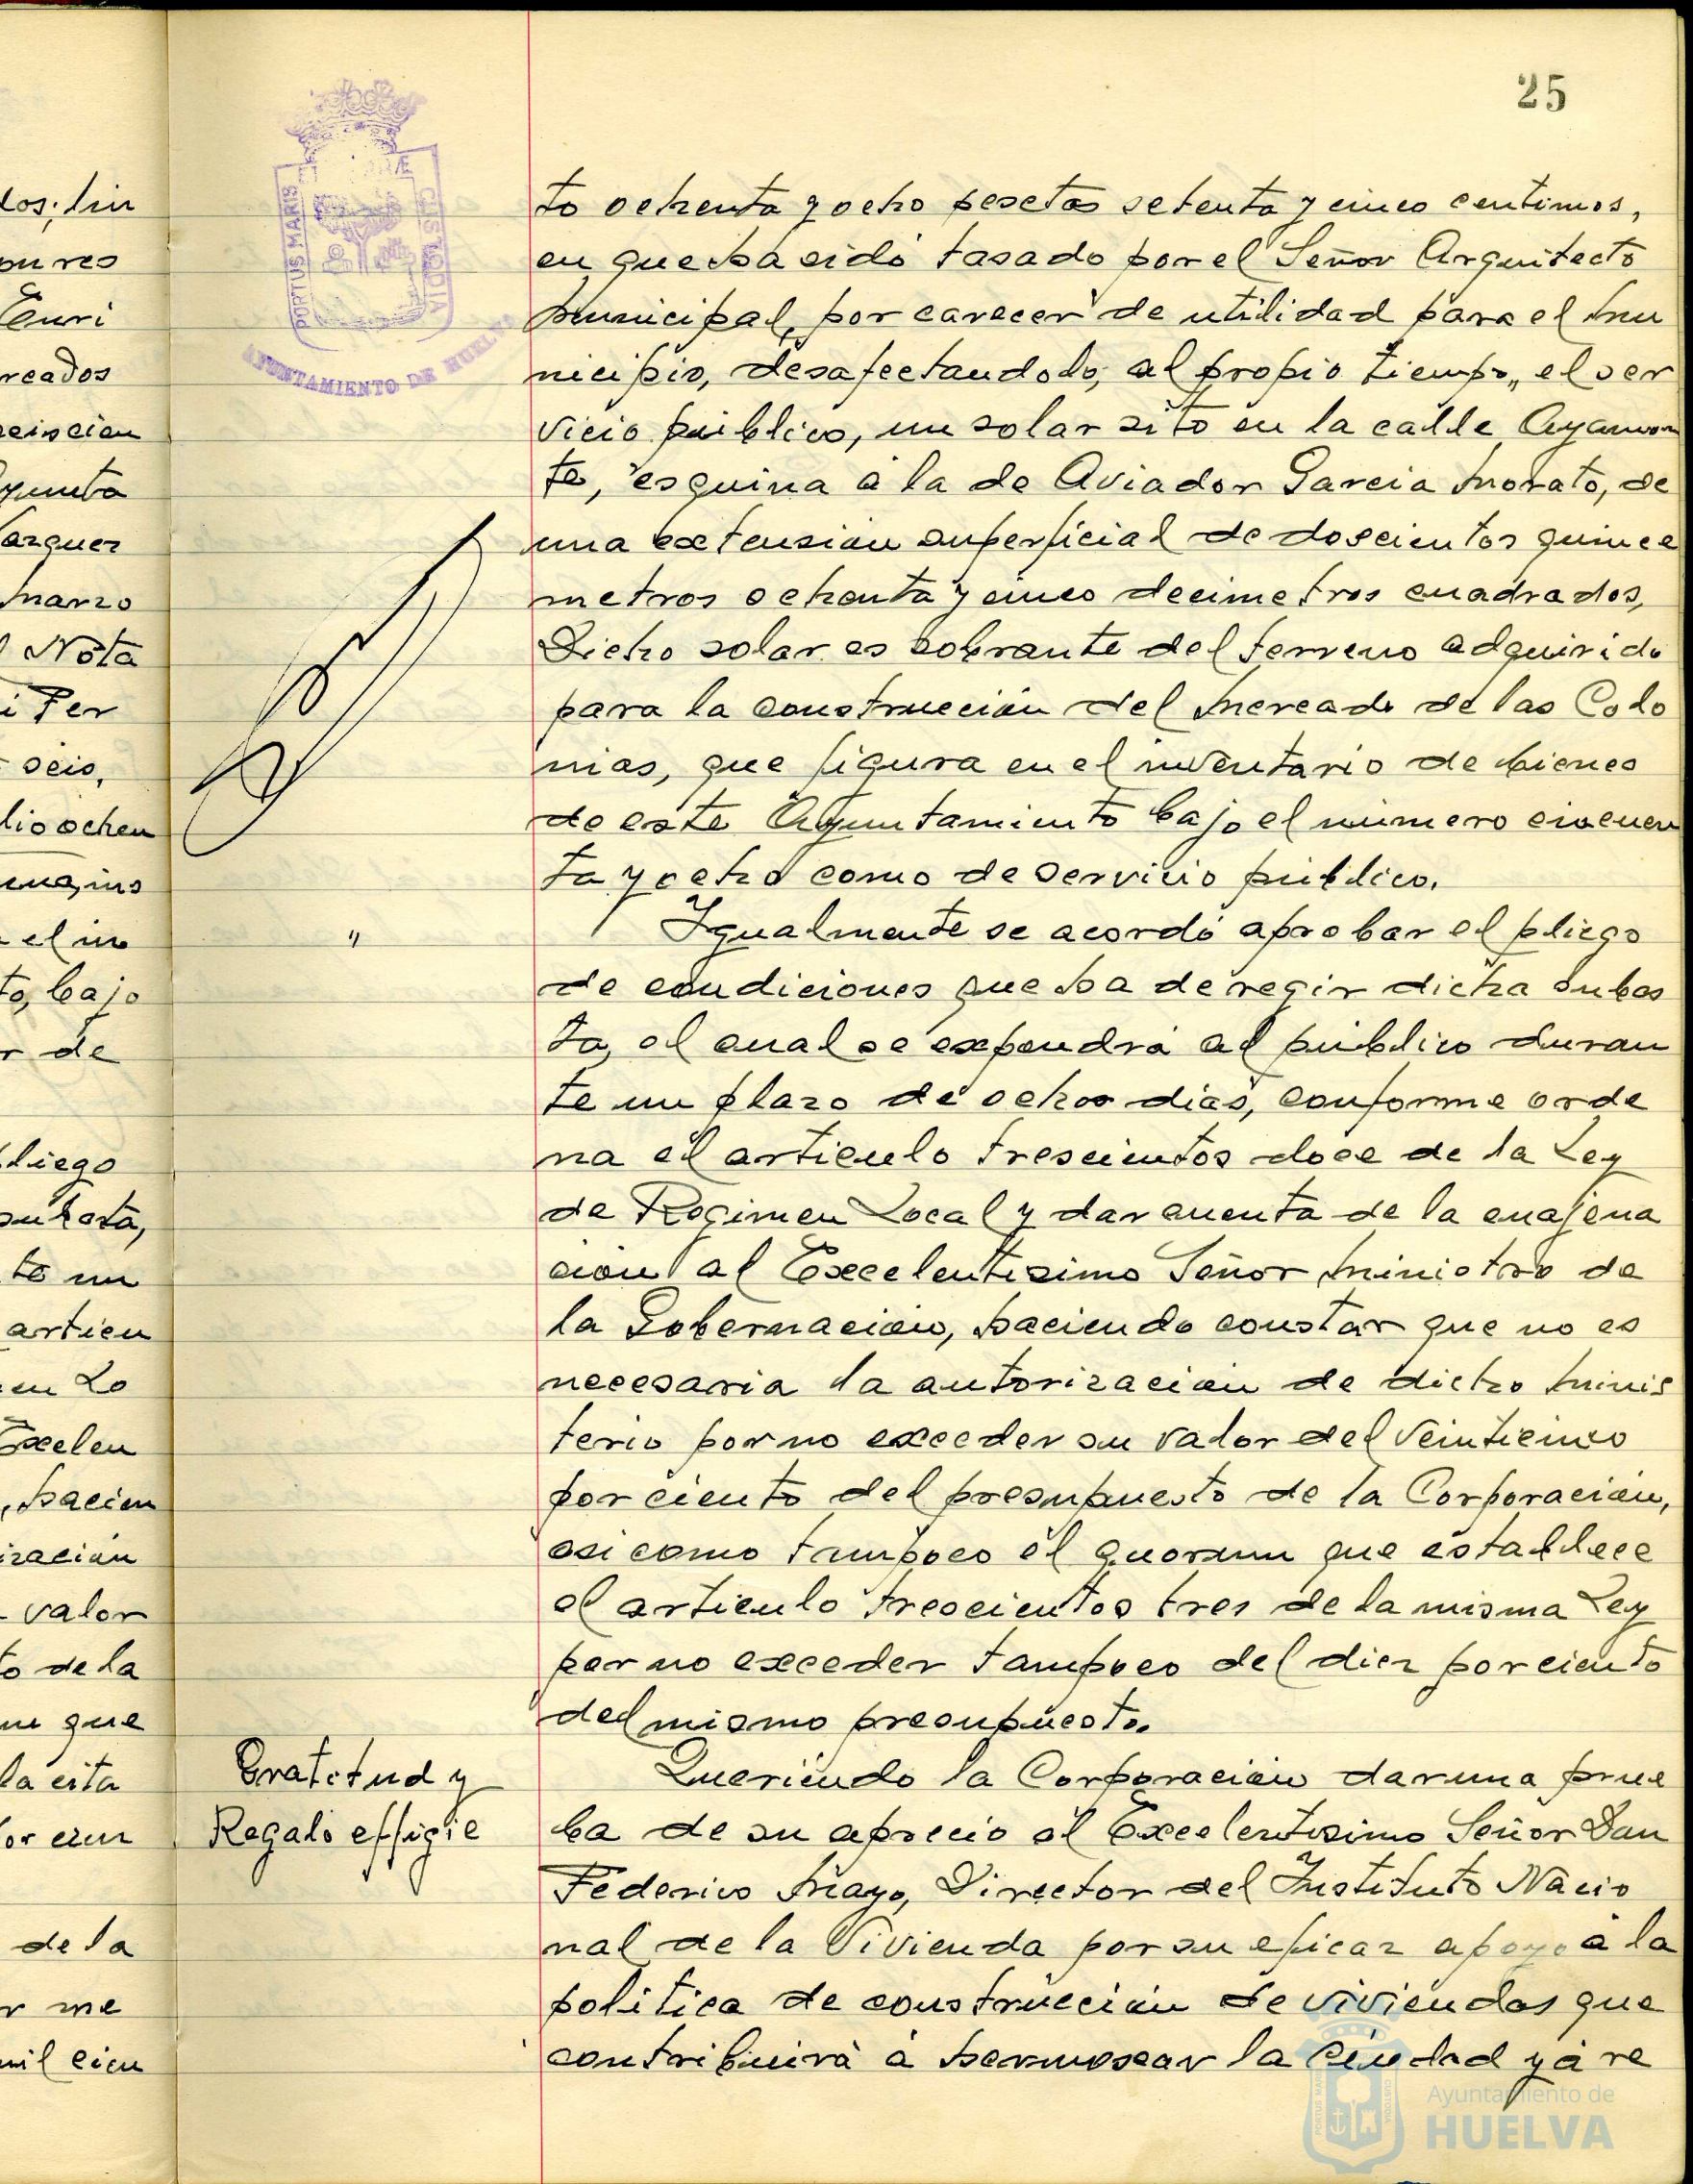 25
to ochenta y ocho pesetas setenta y cinco centimos,
en que ha sido tasado por el Señor Arquitecto
Municipal, por carecer de utilidad para el Mu
nicipio, desafectandolo, al propio tiempo, el ser
vicio público, un solar sito en la calle Ayamon
te, esquina á la de Aviador Garcia Morato, de
una extensión superficial de doscientos quince
metros ochenta y cinco decimetros cuadrados,
Dicho solar es sobrante del terreno adquirido
para la construcción del Mercado de las Colo
nias, que figura en el inventario de bienes
de este Ayuntamiento bajo el número cincuen
ta y ocho como de servicio público.
" Igualmente se acordó aprobar el pliego
de condiciones que ha de regir dicha subas
ta, el cual se expondrá al público duran
te un plazo de ochos dias, conforme orde
na el articulo trescientos doce de la Ley
de Regimen Local y dar cuenta de la enajena
ción al Excelentisimo Señor Ministro de
la Gobernación, haciendo constar que no es
necesaria la autorización de dicho Minis
terio por no exceder su valor del veinticinco
por ciento del presupuesto de la Corporación,
asi como tampoco el quorum que establece
el articulo trescientos tres de la misma Ley
por no exceder tampoco del diez por ciento
del mismo presupuesto.
Gratitud y
Regalo effigie
Queriendo la Corporación dar una prue
ba de su aprecio al Excelentisimo Señor Don
Federico Mayo, Director del Instituto Nacio
nal de la Vivienda por su eficaz apoyo á la
politica de construcción de viviendas que
contribuirá á hermosear la ciudad y á re
PORTUS MARIS
CUSTODIA
AYUNTAMIENTO DE HUELVA
Ayuntamiento de
HUELVA
ados
Nota
seis,
el in
to, bajo
r de
pliego
subasta,
te un
articu
en Lo
Excelen
, hacien
ización
valor
to de la
que
la cita
de la
r me
mil cien